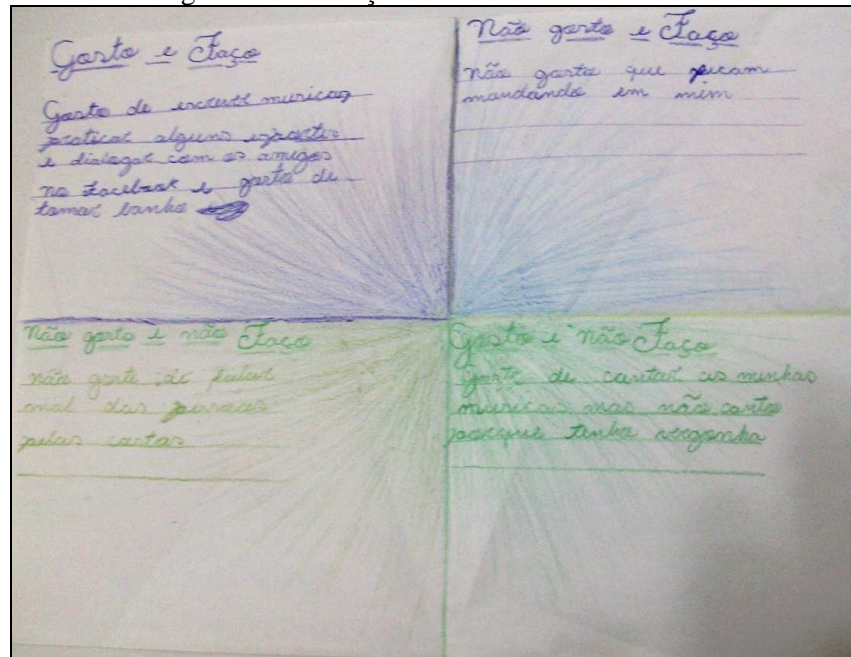 Gosto e Faço
Gosto de escrever musicas
praticar alguns esportes
e dialogar com os amigos
no Facebook e gosto de
tomar banho
Não gosto e Faço
não gosto que ficam
mandando em mim
Não gosto e não Faço
não gosto de falar
mal das pessoas
pelas costas
Gosto e não Faço
Gosto de cantar as minhas
musicas mas não canto
porque tenho vergonha